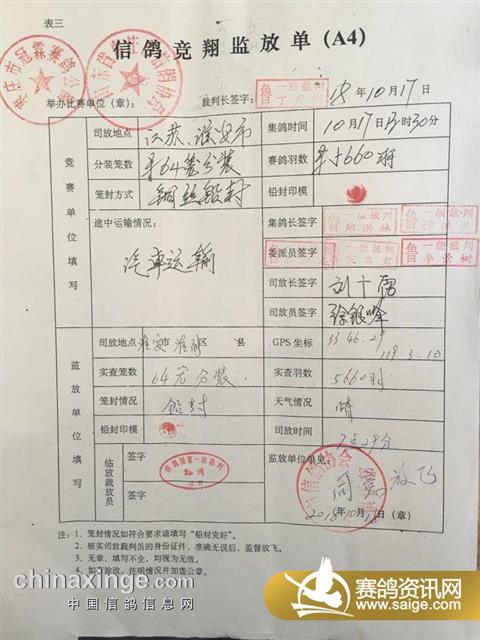 表三
信鸽竞翔监放单(A4)
举办比赛单位(章): 裁判长签字: 18年10月17日
竞赛单位填写
司放地点 江苏.淮安市 集鸽时间 10月17日13时30分
分装笼数 64笼分装 赛鸽羽数 5660羽
笼封方式 钢丝铅封 铅封印模
途中运输情况: 集鸽长签字 一级裁判 一级裁判
汽车运输 委派员签字 一级裁判 一级裁判
司放长签字
司放员签字 徐银
监放单位填写
司放地点 淮安市 淮阴区 县 GPS 坐标 33.46.29
119.3.10
实查笼数 64笼分装 实查羽数 5660羽
笼封情况 铅封 天气情况 晴
铅封印模 司放时间 7点29分
临放裁放员 签字 信鸽国家一级裁判
签字
监放单位意见:
同意放飞
2018年10月 日(章)
注: 1、笼封情况如符合要求请填写“铅封完好”。
2、核实司放裁判员的身份证件、准确无误后,监督放飞。
3、无章、填写不全,均视为无效。
4、如有涂改,注明情况并加盖公章。
chinaxinge.com
中国信鸽信息网
赛鸽资讯网
www.saige.com